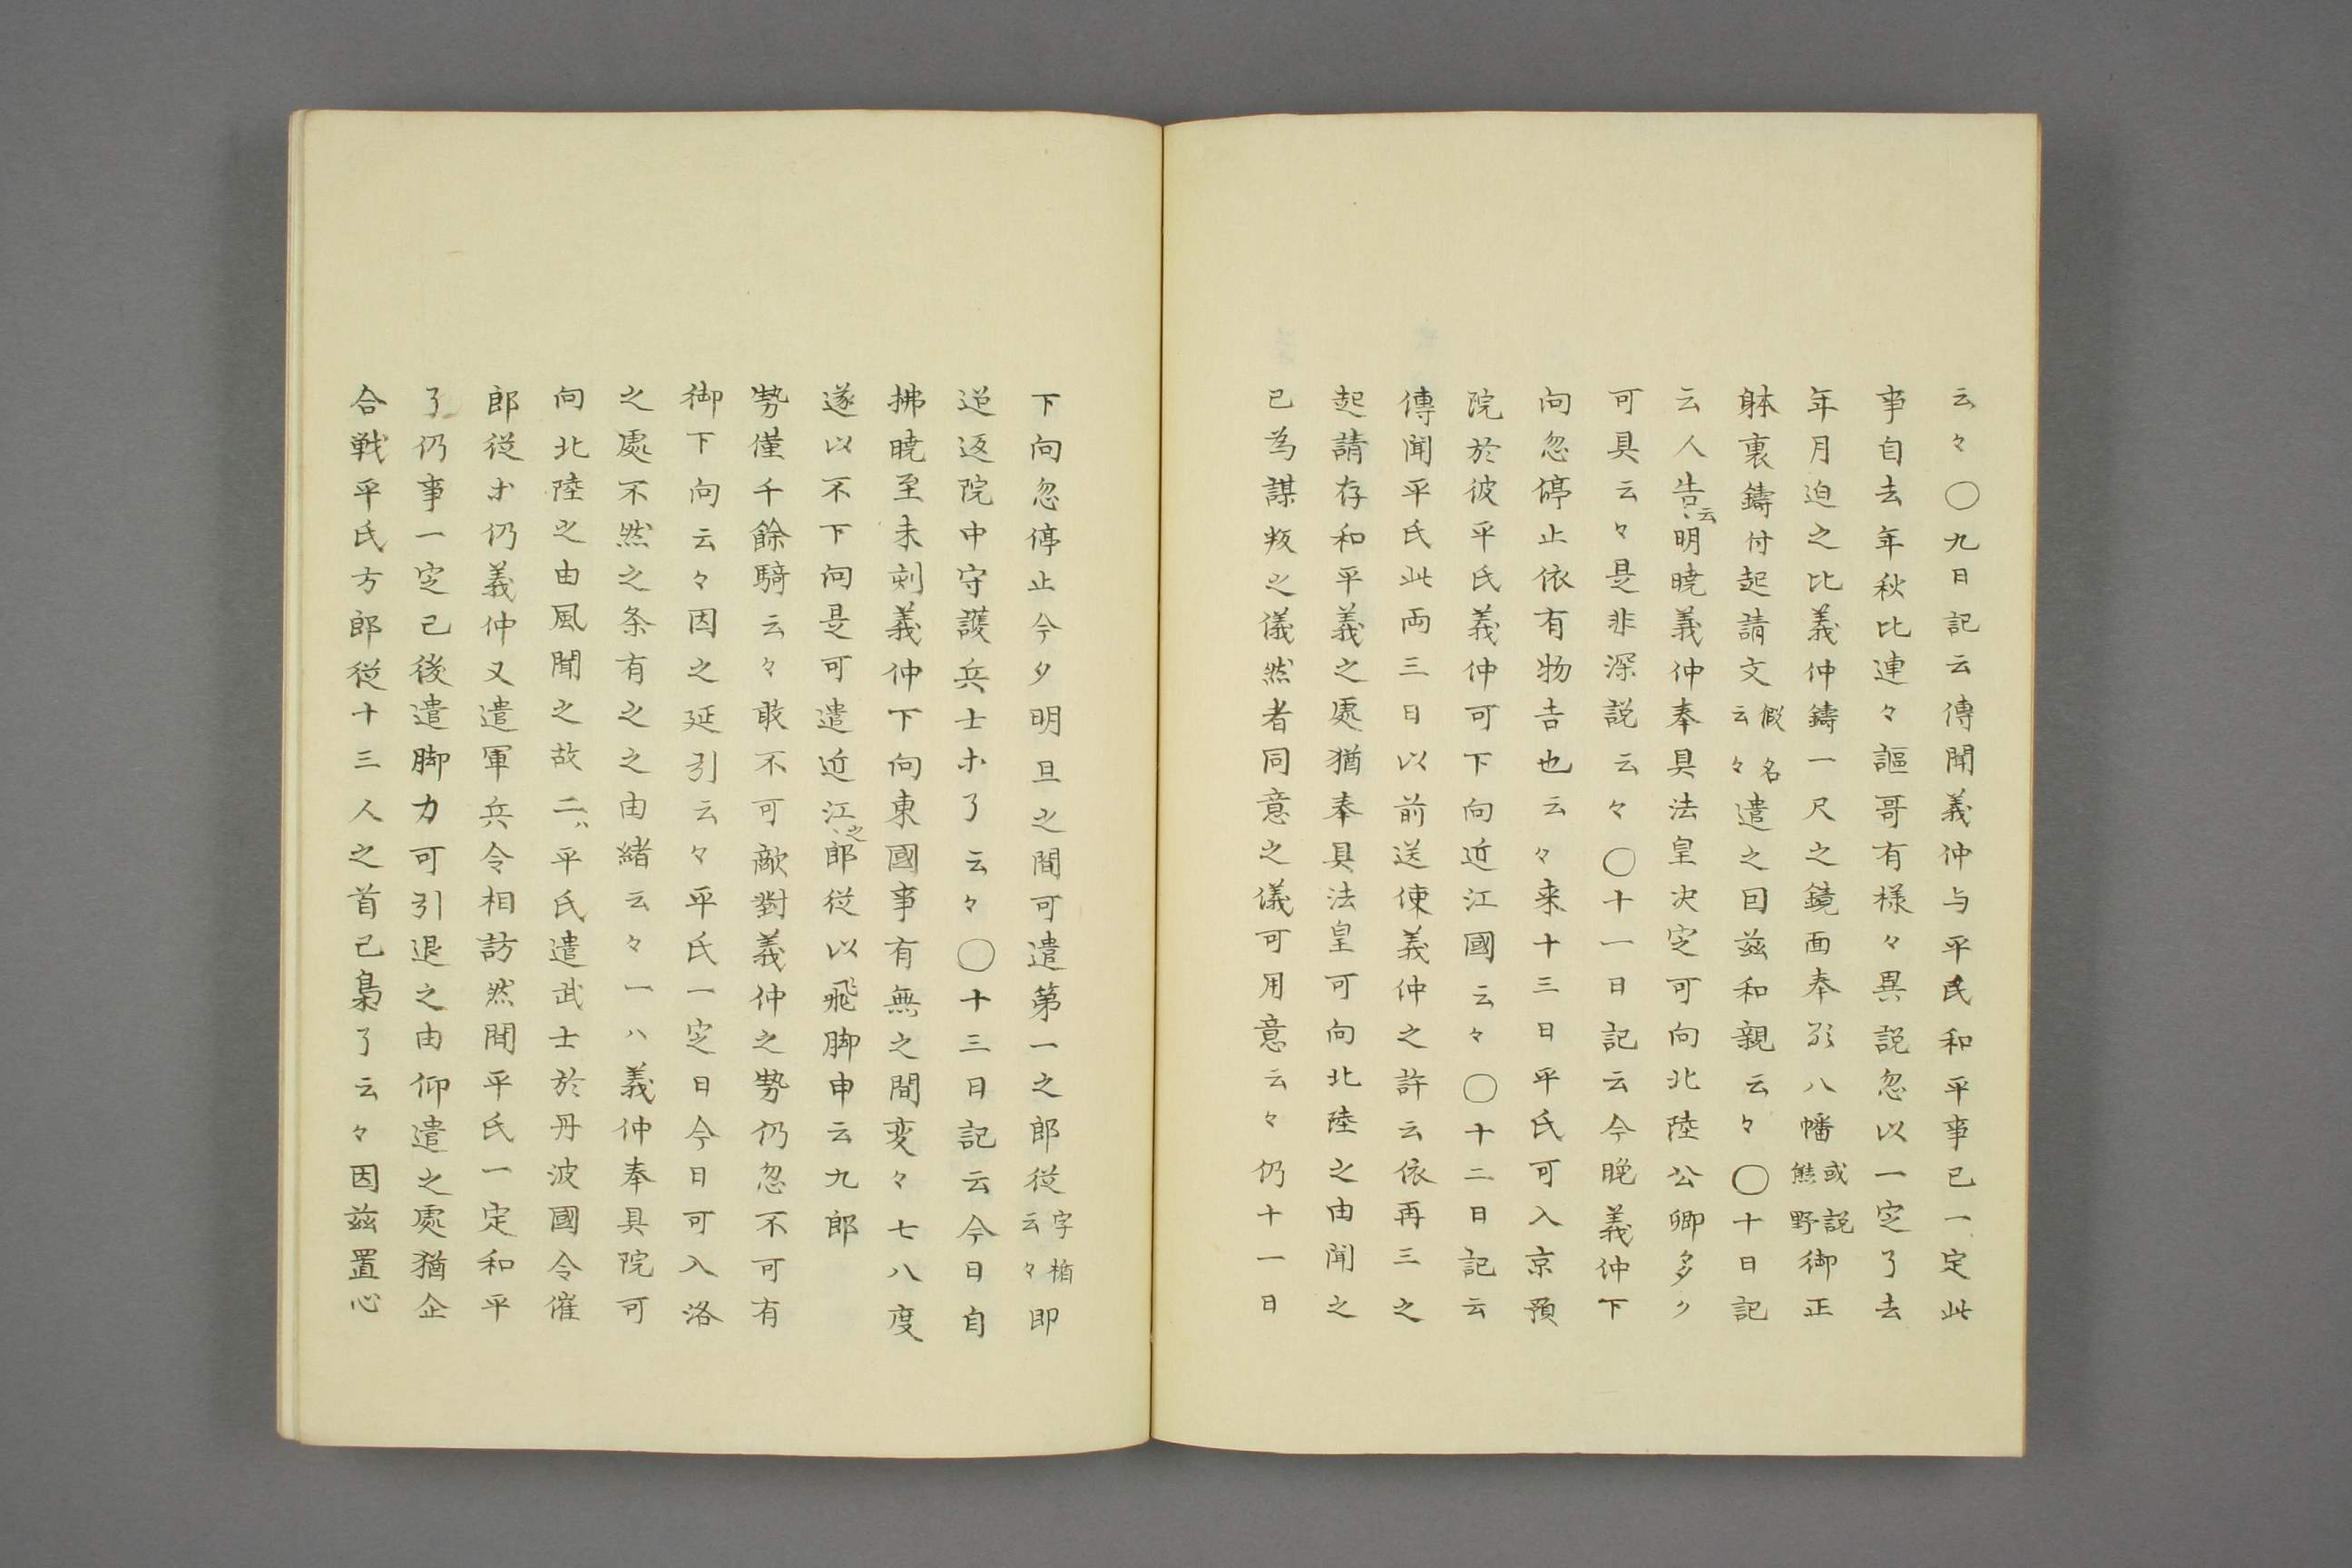 云々〇九日記云傳聞義仲与平氏和平事已一定此
事自去年秋比連々謳哥有様々異説忽以一定了去
年月迫之比義仲鑄一尺之鏡面奉顕八幡或説熊野御正
躰裏鑄付起請文假名云々遣之因茲和親云々〇十日記
云人告云明暁義仲奉具法皇决定可向北陸公卿多ク
可具云々是非深説云々〇十一日記云今晩義仲下
向忽停止依有物告也云々来十三日平氏可入京預
院於彼平氏義仲可下向近江國云々〇十二日記云
傳聞平氏此両三日以前送使義仲之許云依再三之
起請存和平義之處猶奉具法皇可向北陸之由聞之
已為謀叛之儀然者同意之儀可用意云々仍十一日
下向忽停止今夕明旦之間可遣第一之郎従字楯云々即
逆返院中守護兵士ホ了云々〇十三日記云今日自
拂暁至未刻義仲下向東國事有無之間変々七八度
遂以不下向是可遣近江之郎従以飛脚申云九郎
勢僅千餘騎云々敢不可敵對義仲之勢仍忽不可有
御下向云々因之延引云々平氏一定日今日可入洛
之處不然之条有之之由緒云々一ハ義仲奉具院可
向北陸之由風聞之故二ハ平氏遣武士於丹波國令催
郎従ホ仍義仲又遣軍兵令相訪然間平氏一定和平
了仍事一定已後遣脚力可引退之由仰遣之處猶企
合戦平氏方郎従十三人之首已梟了云々因茲置心